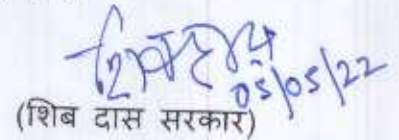 05/05/22
(शिब दास सरकार)